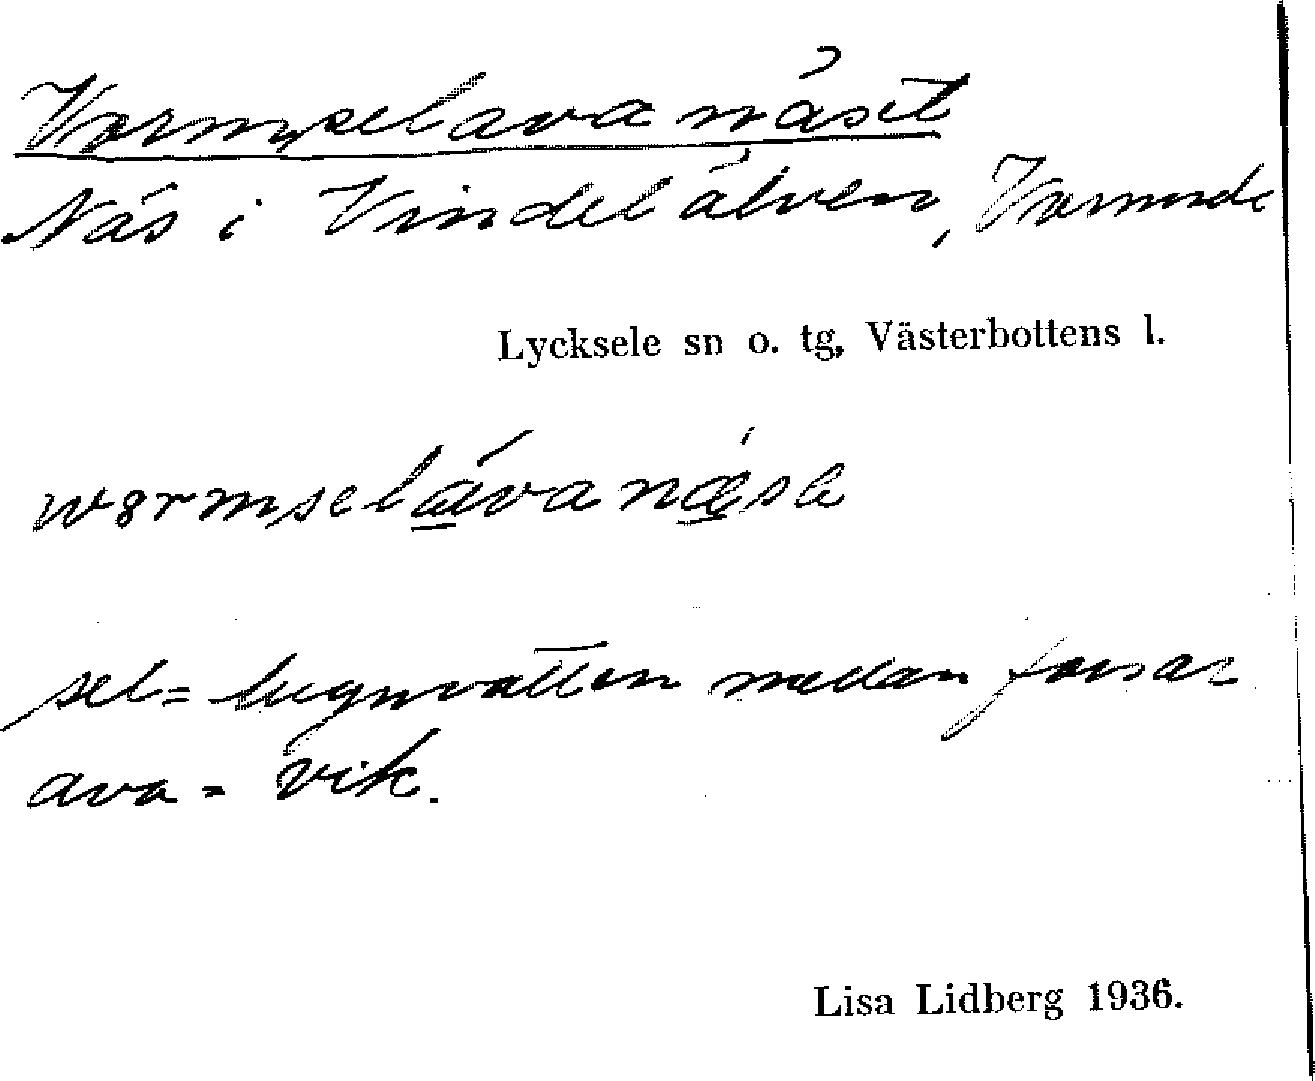 Vormselavanäset
Näs i Vindelälven, Vormsele
Lycksele sn o. tg, Västerbottens l.
sel = lugnvatten mellan forsar
ava = vik.
Lisa Lidberg 1936.